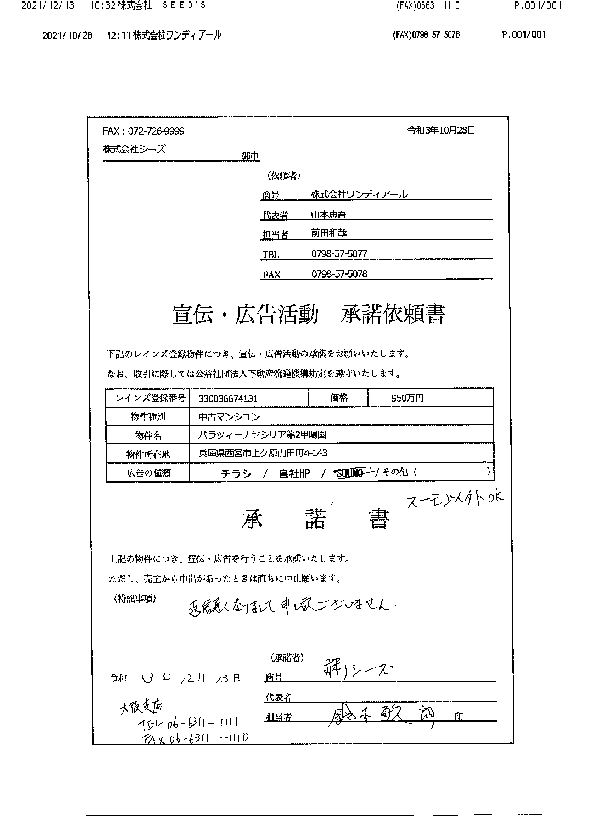 2021/12/13 10:32 株式会社 SEED'S (FAX)0663 P.001/001
2021/10/28 12:11 株式会社ワンディアール (FAX)0798 57 5078 P.001/001
FAX：072-726-9999 令和3年10月28日
株式会社シーズ 御中
（依頼者）
商号 株式会社ワンディアール
代表者
担当者 前田和哉
TEL 0798-57-5077
FAX 0798-57-5078
宣伝・広告活動 承諾依頼書
下記のレインズ登録物件につき、宣伝・広告活動の承諾をお願いいたします。
なお、取引に際しては公益社団法人不動産流通機構規定を遵守いたします。
レインズ登録番号 330036674131 価格 950万円
物件種別 中古マンション
物件名 パラツィーナヤシリア第2甲陽園
物件所在地 兵庫県西宮市上ケ原山田町4-143
広告の種類 チラシ / 自社HP / SUUMO / その他（ ）
スーモ以外OK
承諾書
上記の物件につき、宣伝・広告を行うことを承諾いたします。
ただし、売主から申出があったときは直ちに中止願います。
（特記事項）
遅くなりまして申し訳ございません。
（承諾者）
令和 3年 12月 13日
商号 ㈱シーズ
代表者
大阪支店
担当者 印
TEL 06-6311-1111
FAX 06-6311-1110